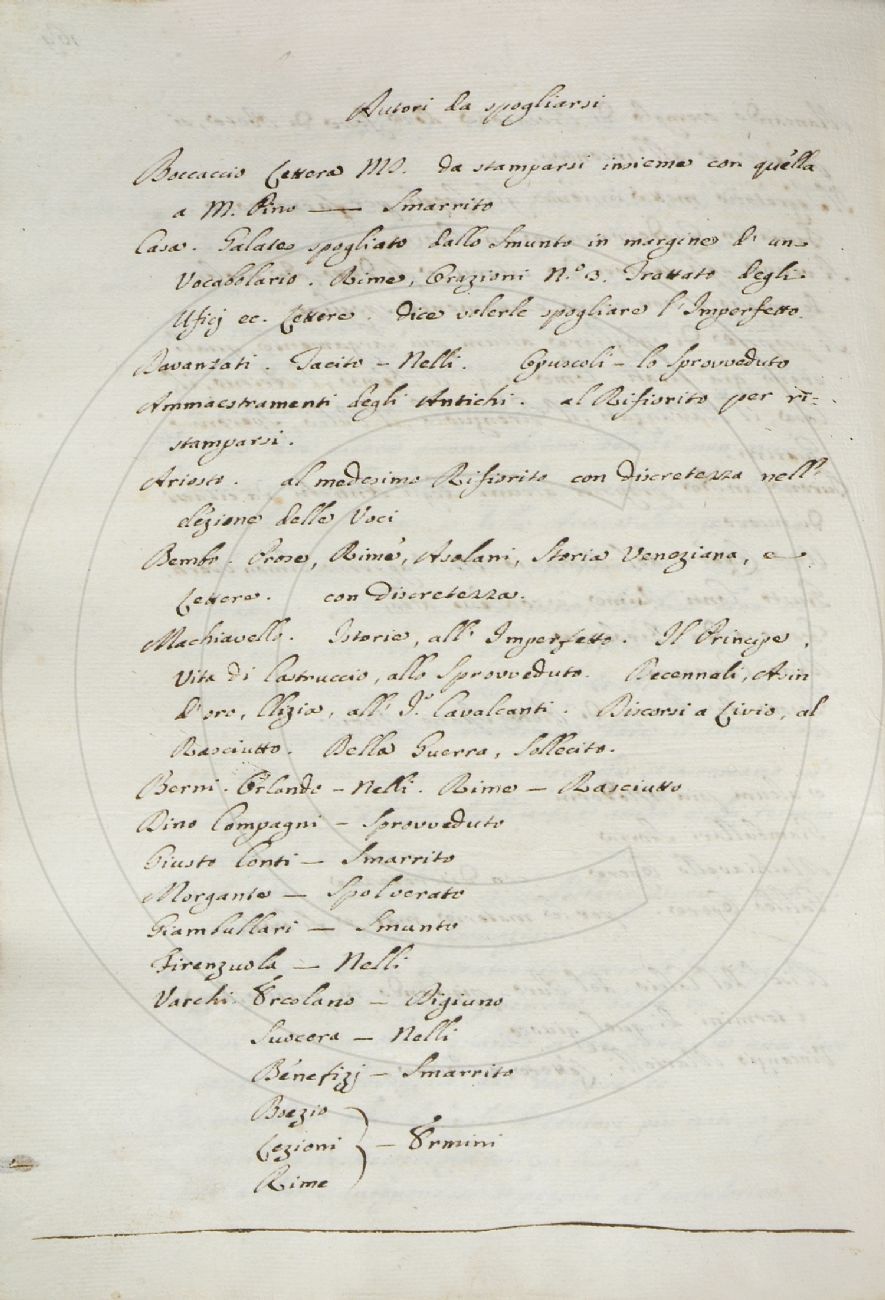 Autori da spogliarsi
Boccaccio Lettera MS. da stamparsi insieme con quella
a M. Pino — Smarrito
Casa. Galateo spogliato dallo Smunto in margine d'un
Vocabolario. Rime, Orazioni N.º 3. Trattato degli
Ufizj ec. Lettere. dice volerle spogliare l'Imperfetto.
Davanzati. Tacito – Nelli. Opuscoli – lo Sprovveduto
Ammaestramenti degli Antichi. al Rifiorito per ri=
stamparsi.
Ariosto. al medesimo Rifiorito con discretezza nell'
elezione delle Voci
Bembo. Prose, Rime, Asolani, Storia Veneziana, e
Lettere. con discretezza.
Machiavello. Istorie, all' Imperfetto. Il Principe,
Vita di Castruccio, allo Sprovveduto. Decennali, Asin
d'oro, Clizia, all' J.º Cavalcanti. Discorsi a Livio, al
Rasciutto. Della Guerra, Sollecito.
Berni. Orlando – Nelli. Rime – Rasciutto
Dino Compagni – Sprovveduto
Giusto Conti – Smarrito
Morgante – Spolverato
Giambullari – Smunto
Firenzuola – Nelli
Varchi. Ercolano – Digiuno
Suocera – Nelli
Benefizj – Smarrito
Boezio
Lezioni – Ermini
Rime